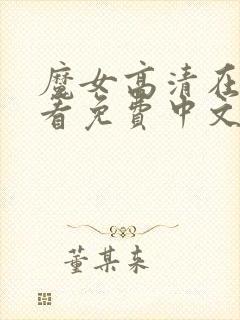 魔女高清在
看免費中文
董某来